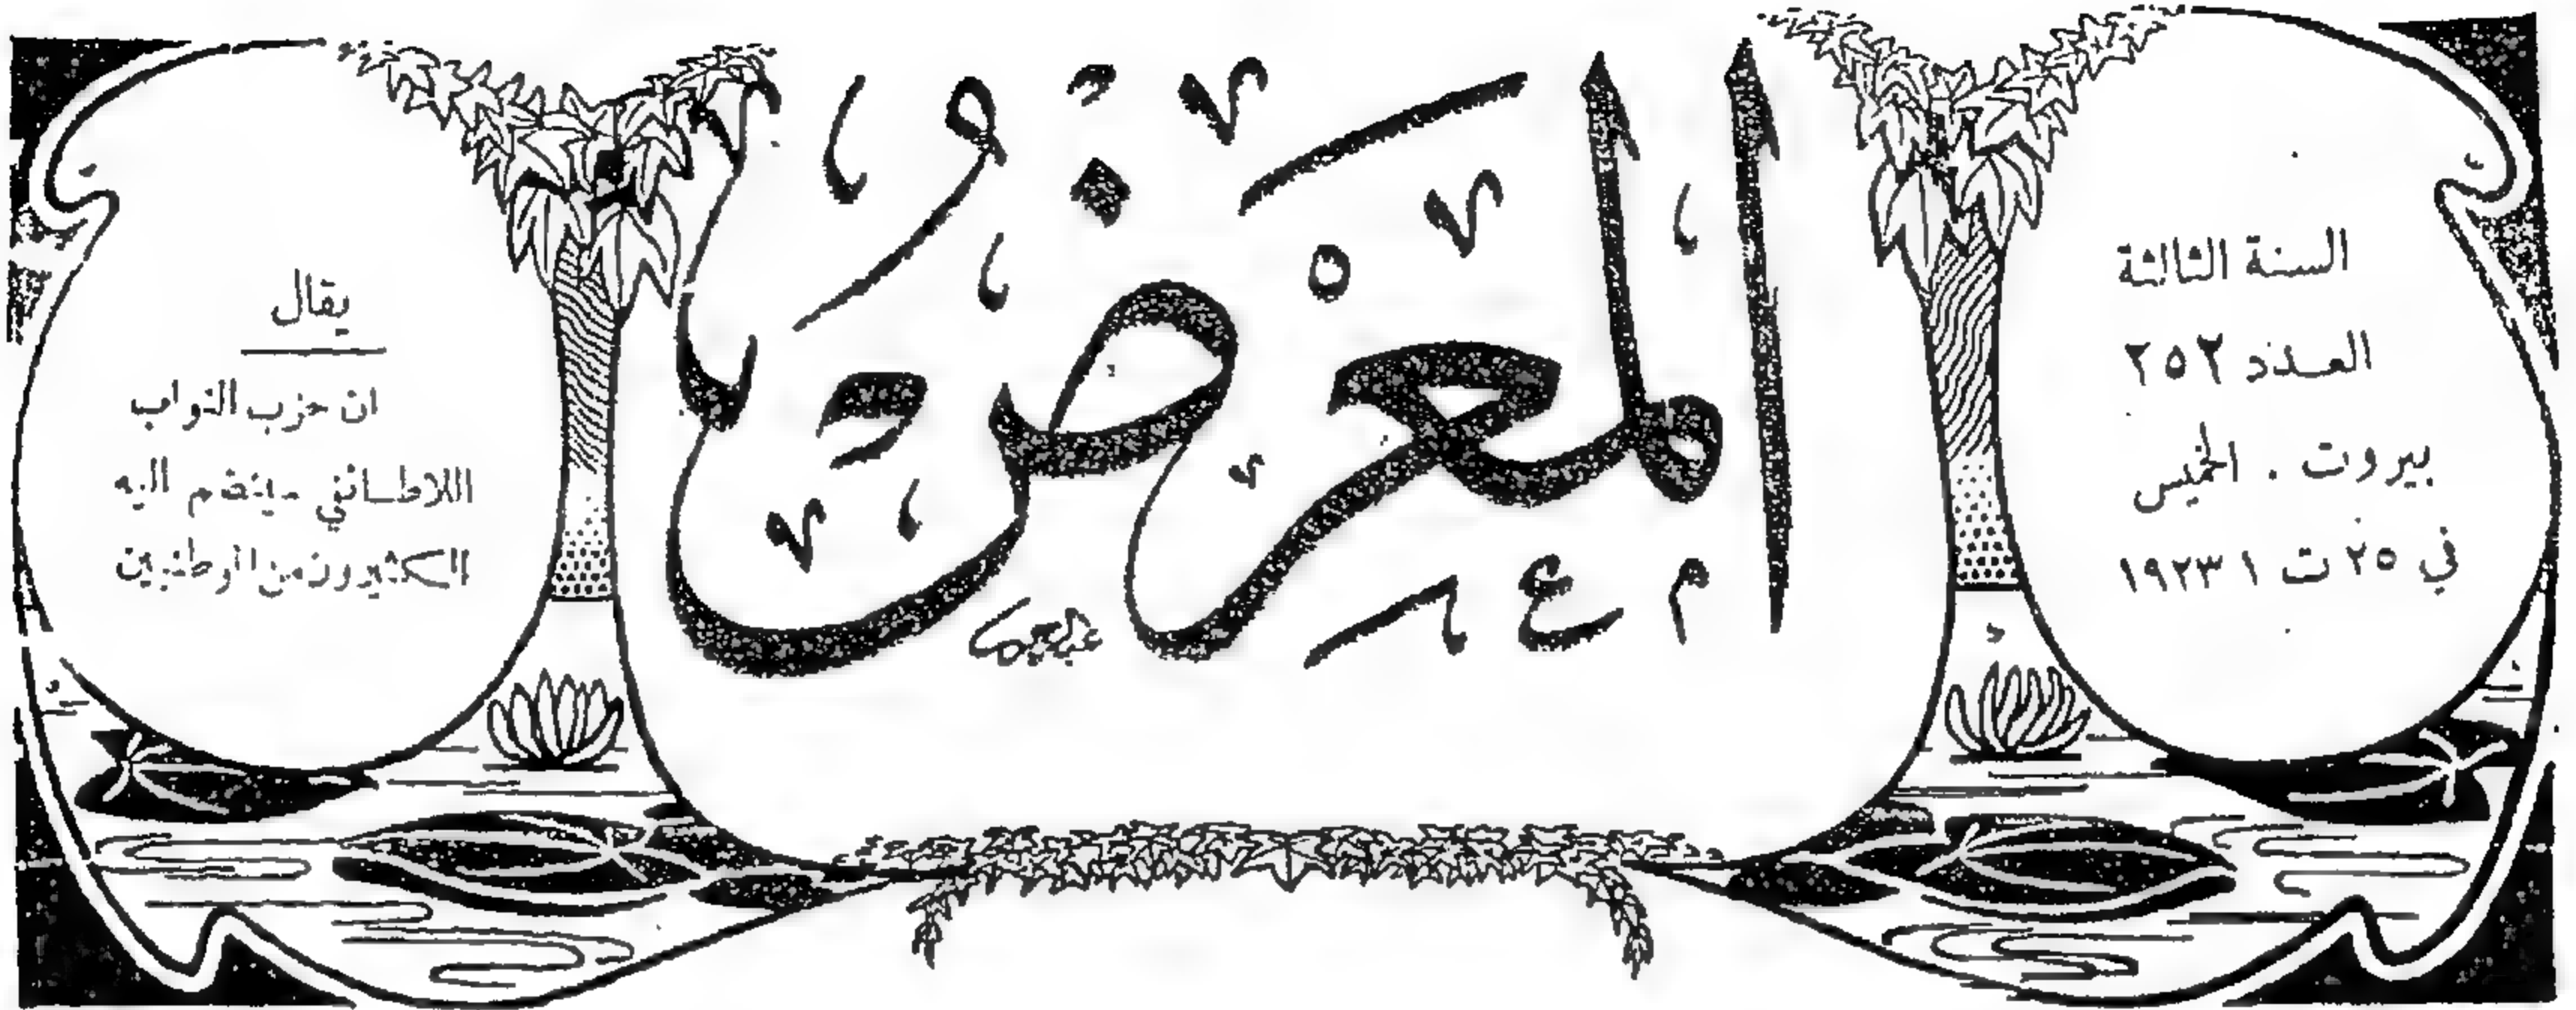 السنة الثالثة
العدد ٢٥٢
بيروت . الخميس
في ٢٥ ت ١ ١٩٢٣
المعرض
يقال
ان حزب النواب
اللاطائفي سينضم اليه
الكثيرون من الوطنيين